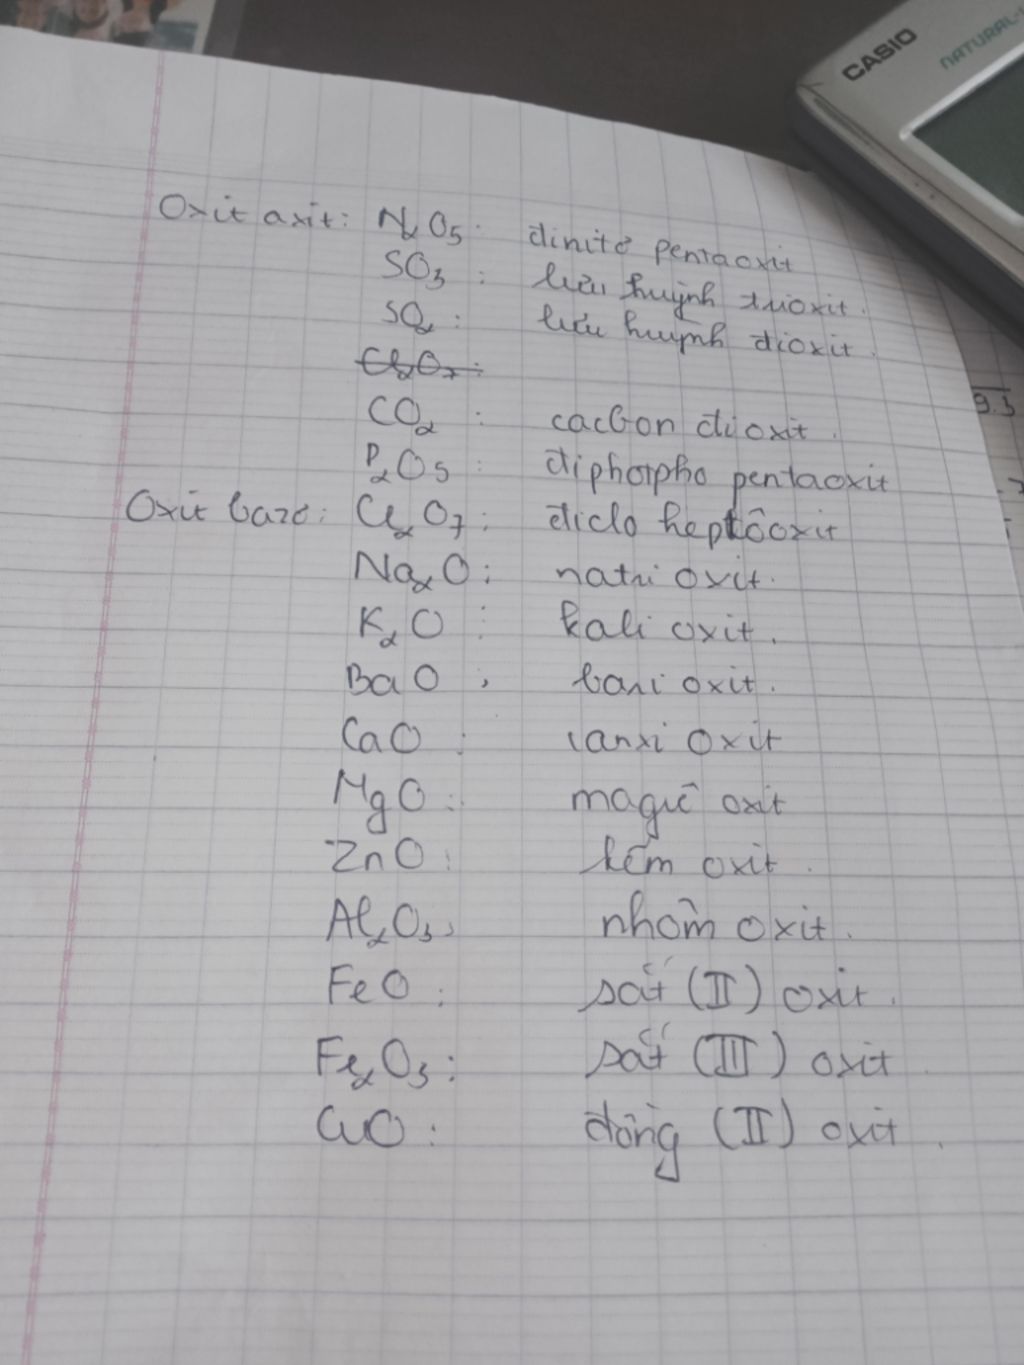 CASIO
NATURAL-
Oxit axit: N2O5: đinitơ pentaoxit
SO3: lưu huỳnh trioxit.
SO2: lưu huỳnh đioxit.
Cl2O7:
CO2: cacbon đioxit.
P2O5: điphotpho pentaoxit
Oxit bazơ: Cl2O7: điclo heptôoxit
Na2O: natri oxit.
K2O: kali oxit.
BaO: bari oxit.
CaO: canxi oxit
MgO: magiê oxit
ZnO: kẽm oxit.
Al2O3: nhôm oxit.
FeO: sắt (II) oxit.
Fe2O3: sắt (III) oxit
CuO: đồng (II) oxit.
9.3